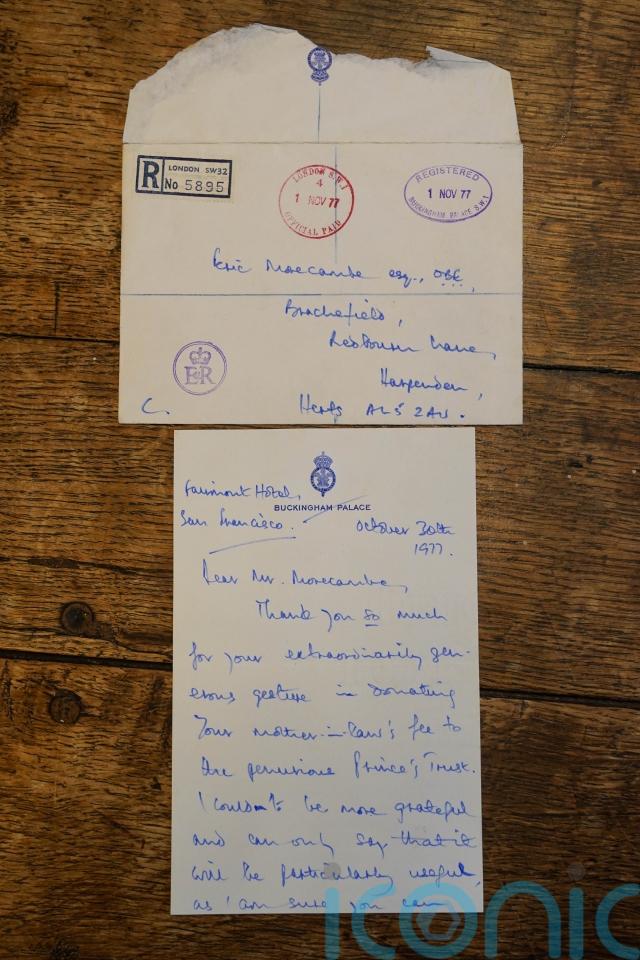 R
LONDON SW32
No 5895
LONDON S.W.1
4
1 NOV 77
OFFICIAL PAID
REGISTERED
1 NOV 77
BUCKINGHAM PALACE S.W.1
Eric Morecambe esq., OBE,
Brachefield,
Redbourn Lane,
Harpenden,
EIIR
C.
Herts AL5 2AW.
Fairmont Hotel,
San Francisco.
BUCKINGHAM PALACE
October 30th
1977.
Dear Mr. Morecambe,
Thank you so much
for your extraordinarily gen-
erous gesture in donating
your mother-in-law's fee to
the penurious Prince's Trust.
I couldn't be more grateful
and can only say that it
will be particularly useful,
as I am sure you can
iconic